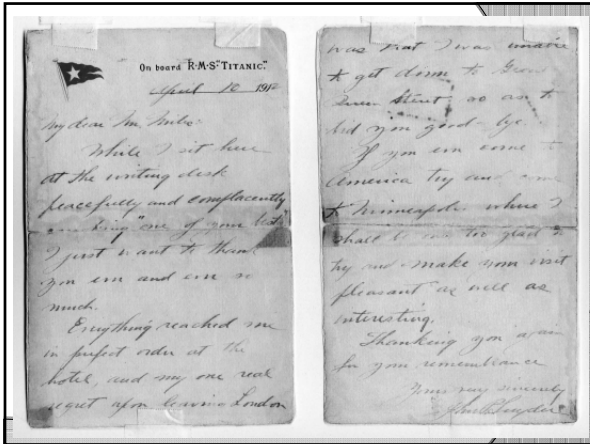 On board R·M·S·"TITANIC."
April 10 1912
My dear Mr.
While I sit here
at the writing desk
peacefully and complacently
"one of your best"
I just want to thank
you ever and ever so
much.
Everything reached me
in perfect order at the
hotel, and my one real
regret upon leaving London
was that I was unable
to get down to
Street so as to
bid you good-bye.
If you ever come to
America try and come
to Minneapolis where I
shall be too glad to
try and make your visit
pleasant as well as
interesting.
Thanking you again
for your remembrance
Yours very sincerely
John Snyder